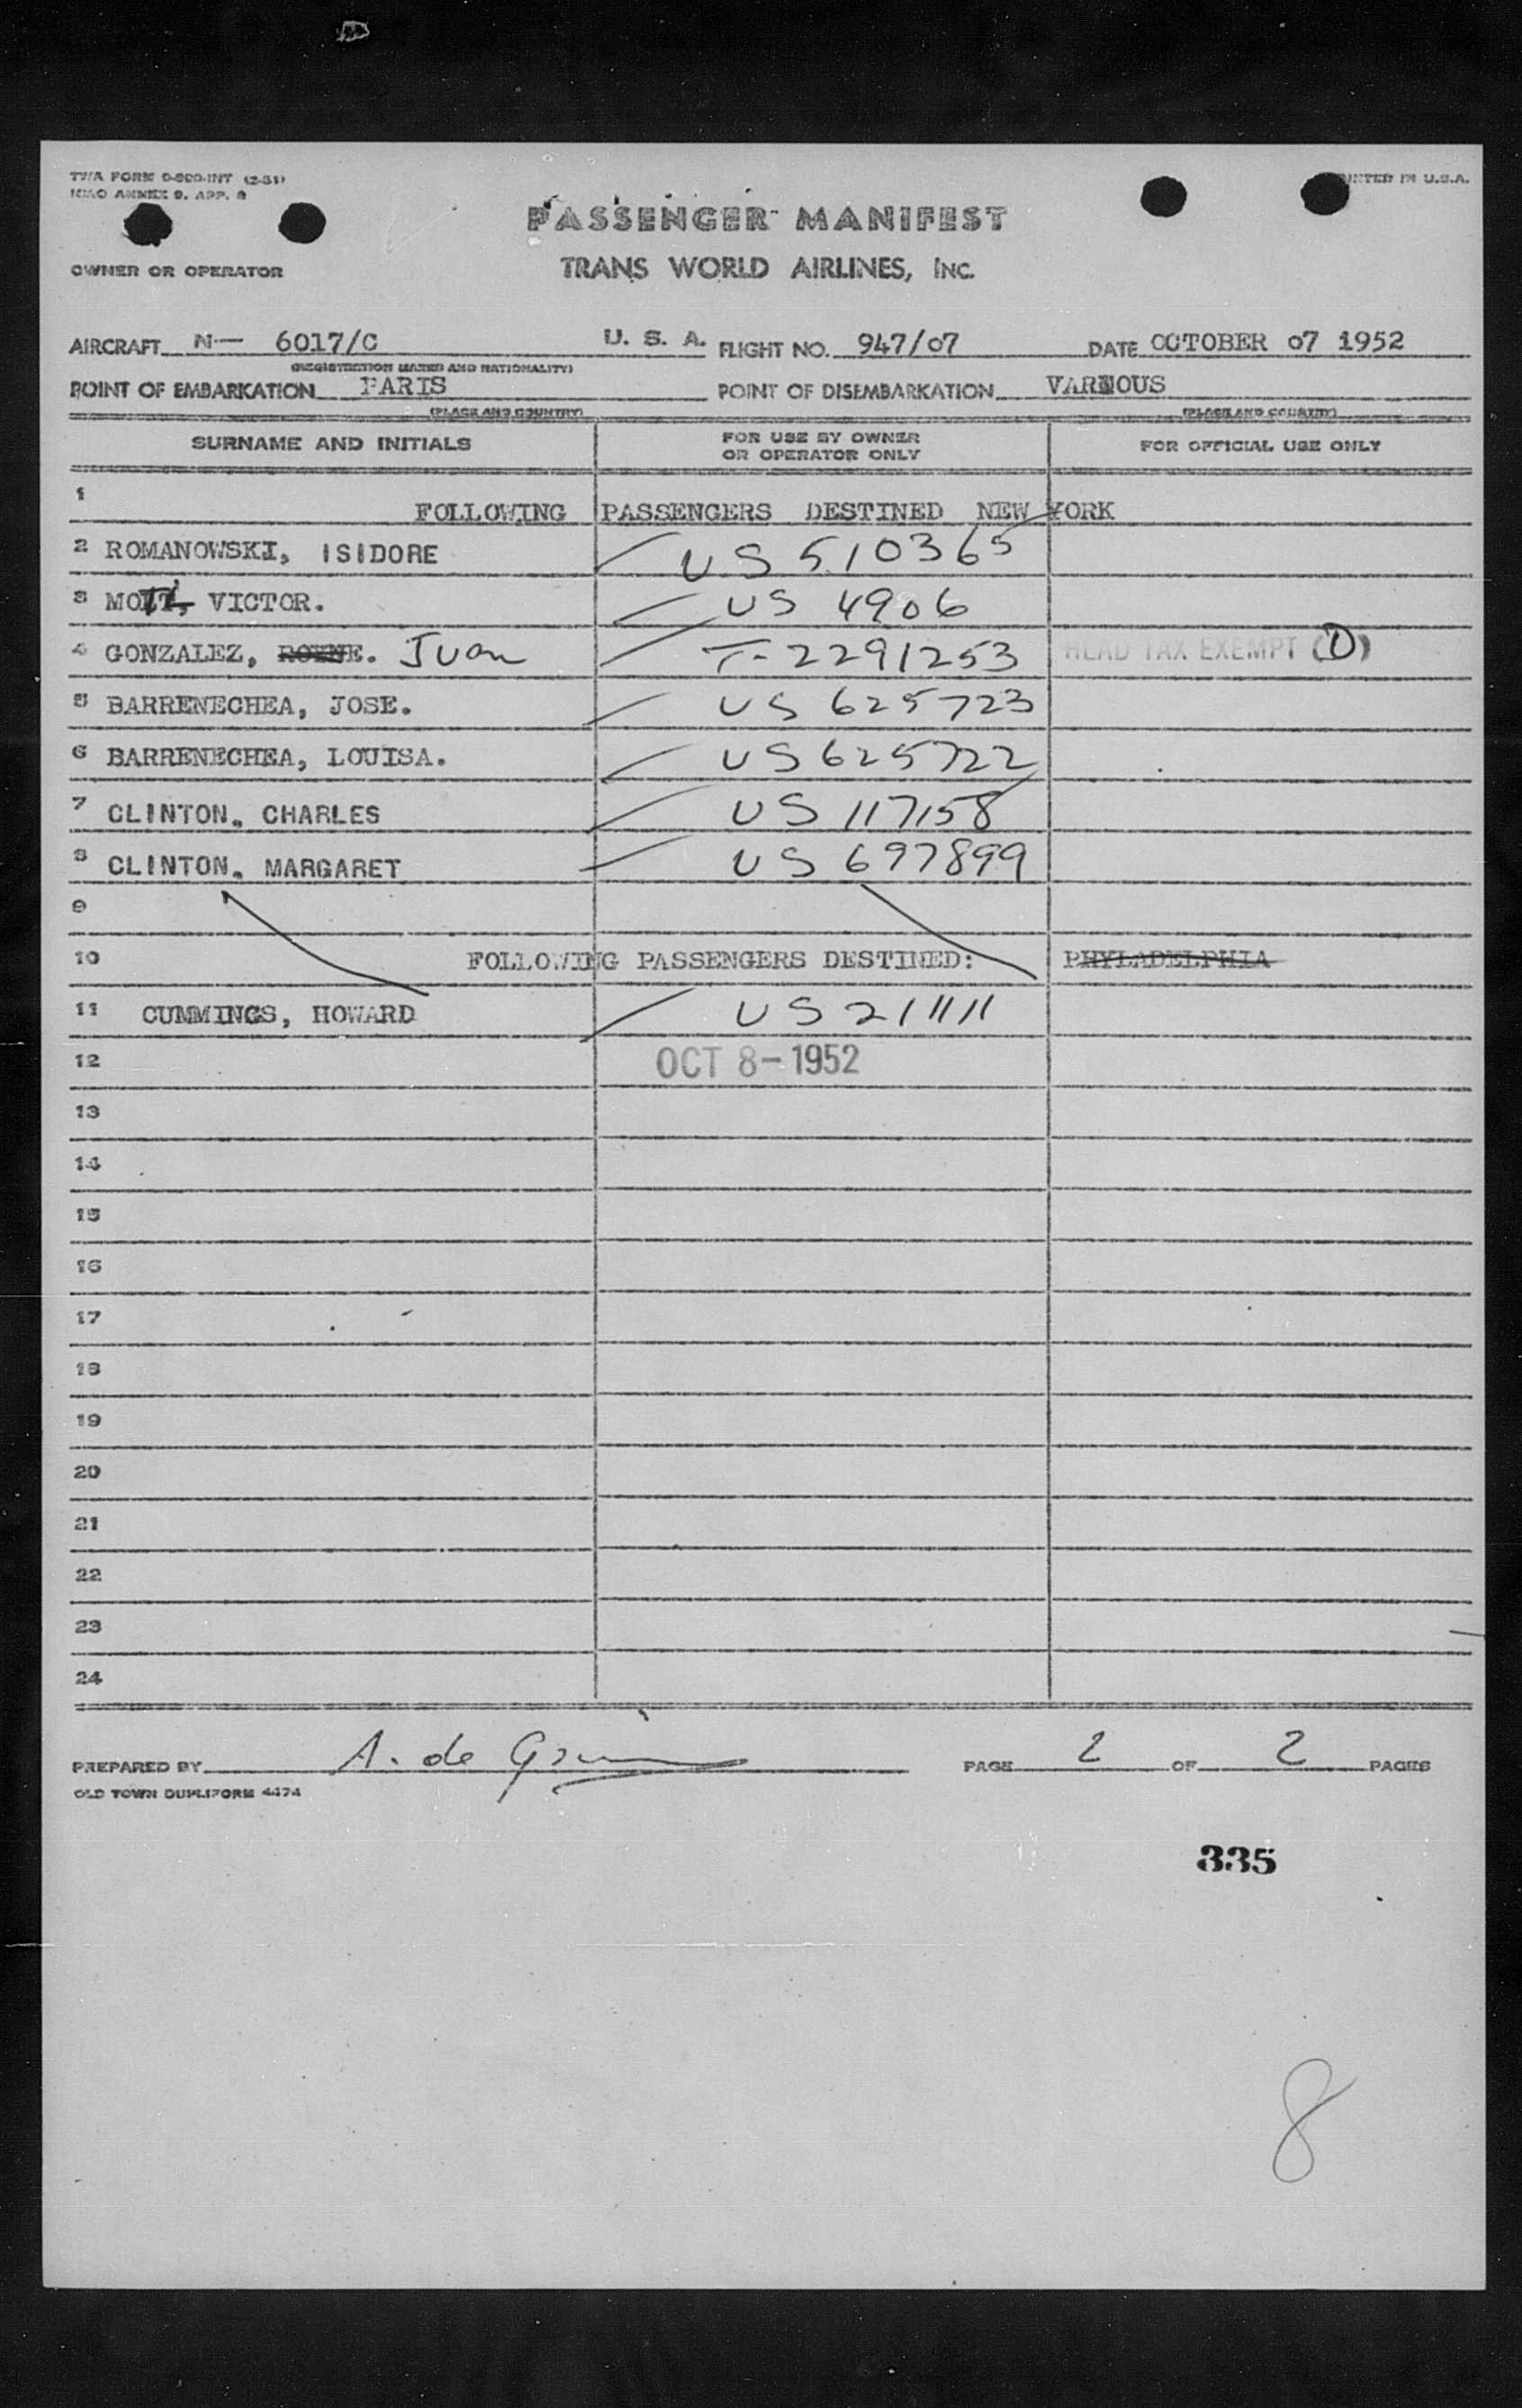 TWA FORM 0-800-INT (2-51)
ICAO ANNEX 9, APP. 8
PRINTED IN U.S.A.
PASSENGER MANIFEST
OWNER OR OPERATOR TRANS WORLD AIRLINES, INC.
AIRCRAFT N— 6017/C U. S. A. FLIGHT NO. 947/07 DATE OCTOBER 07 1952
(REGISTRATION MARKS AND NATIONALITY)
POINT OF EMBARKATION PARIS POINT OF DISEMBARKATION VARIOUS
(PLACE AND COUNTRY) (PLACE AND COUNTRY)
SURNAME AND INITIALS FOR USE BY OWNER OR OPERATOR ONLY FOR OFFICIAL USE ONLY
1 FOLLOWING PASSENGERS DESTINED NEW YORK
2 ROMANOWSKI, ISIDORE US 510365
3 MOTT, VICTOR. US 4906
4 GONZALEZ, Juan T-2291253 HEAD TAX EXEMPT (D)
5 BARRENECHEA, JOSE. US 625723
6 BARRENECHEA, LOUISA. US 625722
7 CLINTON, CHARLES US 117158
8 CLINTON, MARGARET US 697899
9
10 FOLLOWING PASSENGERS DESTINED: PHYLADELPHIA
11 CUMMINGS, HOWARD US 211111
12 OCT 8-1952
13
14
15
16
17
18
19
20
21
22
23
24
PREPARED BY A. de PAGE 2 OF 2 PAGES
OLD TOWN DUPLIFORM 4474
335
8